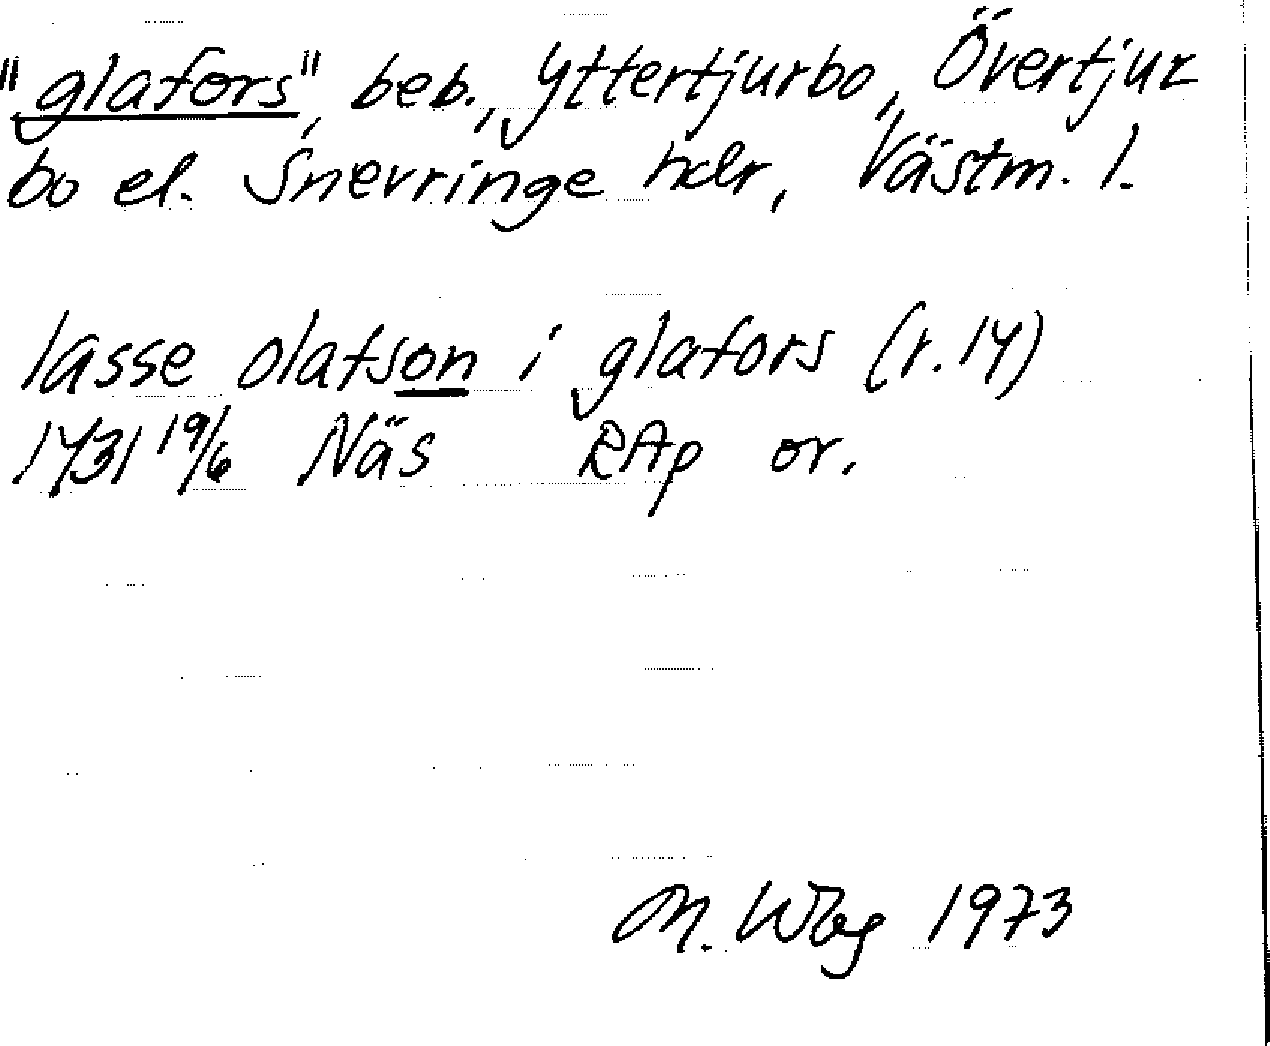 "glafors", beb., Yttertjurbo, Övertjur
bo el. Snevringe hdr, Västm. l.
lasse olafson i glafors (r. 14)
1431 19/6 Näs RAp or.
M. Wbg 1973